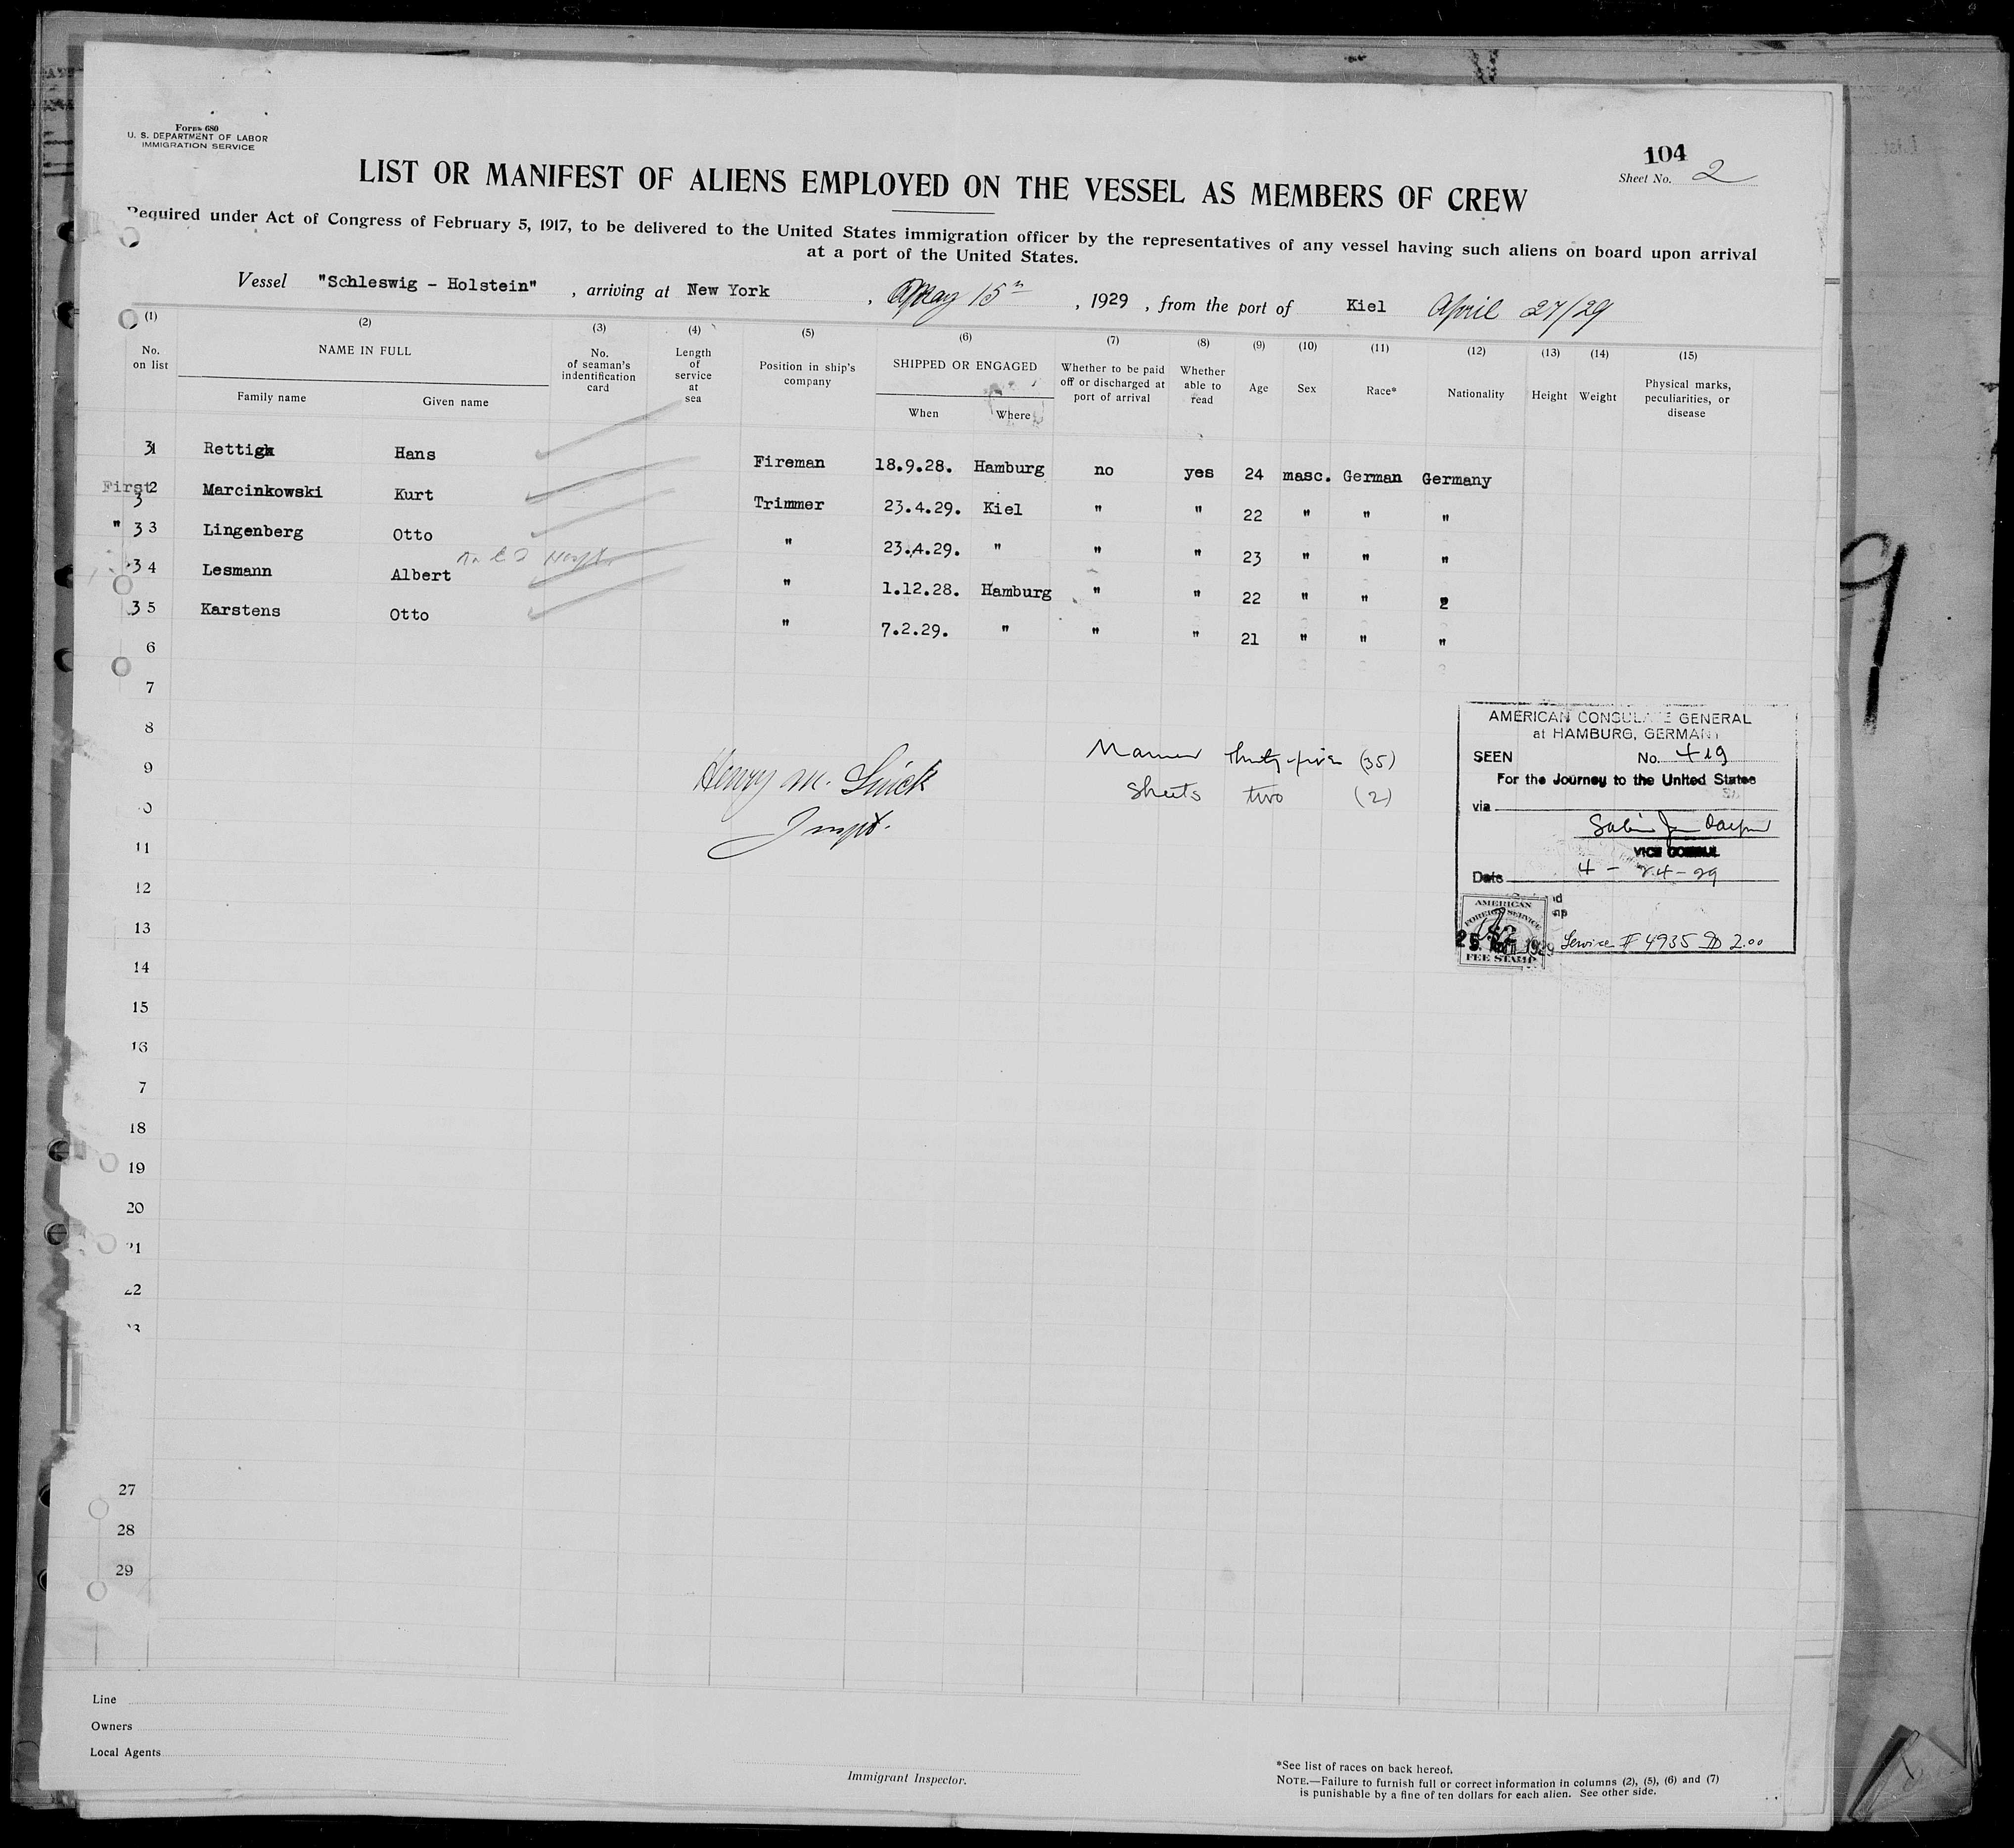 Form 680
U. S. DEPARTMENT OF LABOR
IMMIGRATION SERVICE
104
Sheet No. 2
LIST OR MANIFEST OF ALIENS EMPLOYED ON THE VESSEL AS MEMBERS OF CREW
Required under Act of Congress of February 5, 1917, to be delivered to the United States immigration officer by the representatives of any vessel having such aliens on board upon arrival
at a port of the United States.
Vessel "Schleswig - Holstein" , arriving at New York , May 15th , 1929 , from the port of Kiel April 27/29
(1) (2) (3) (4) (5) (6) (7) (8) (9) (10) (11) (12) (13) (14) (15)
No. on list
NAME IN FULL
Family name Given name
No. of seaman's indentification card
Length of service at sea
Position in ship's company
SHIPPED OR ENGAGED
When Where
Whether to be paid off or discharged at port of arrival
Whether able to read
Age
Sex
Race*
Nationality
Height
Weight
Physical marks, peculiarities, or disease
31 Rettig Hans Fireman 18.9.28. Hamburg no yes 24 masc. German Germany
First 32 Marcinkowski Kurt Trimmer 23.4.29. Kiel " " 22 " " "
" 33 Lingenberg Otto " 23.4.29. " " " 23 " " "
34 Lesmann Albert " 1.12.28. Hamburg " " 22 " " "
35 Karstens Otto " 7.2.29. " " " 21 " " "
6
7
8
9
0
11
12
13
14
15
16
7
18
19
20
21
22
27
28
29
Henry M.
Inspt.
thirty-five (35)
Sheets two (2)
AMERICAN CONSULATE GENERAL
at HAMBURG, GERMANY
SEEN No. 419
For the Journey to the United States
via
VICE CONSUL
Date 4 - 24 - 29
AMERICAN
FOREIGN SERVICE
$2
25. April 1929
FEE STAMP
Service # 4935 2.00
Line
Owners
Local Agents
Immigrant Inspector.
*See list of races on back hereof.
NOTE.—Failure to furnish full or correct information in columns (2), (5), (6) and (7)
is punishable by a fine of ten dollars for each alien. See other side.